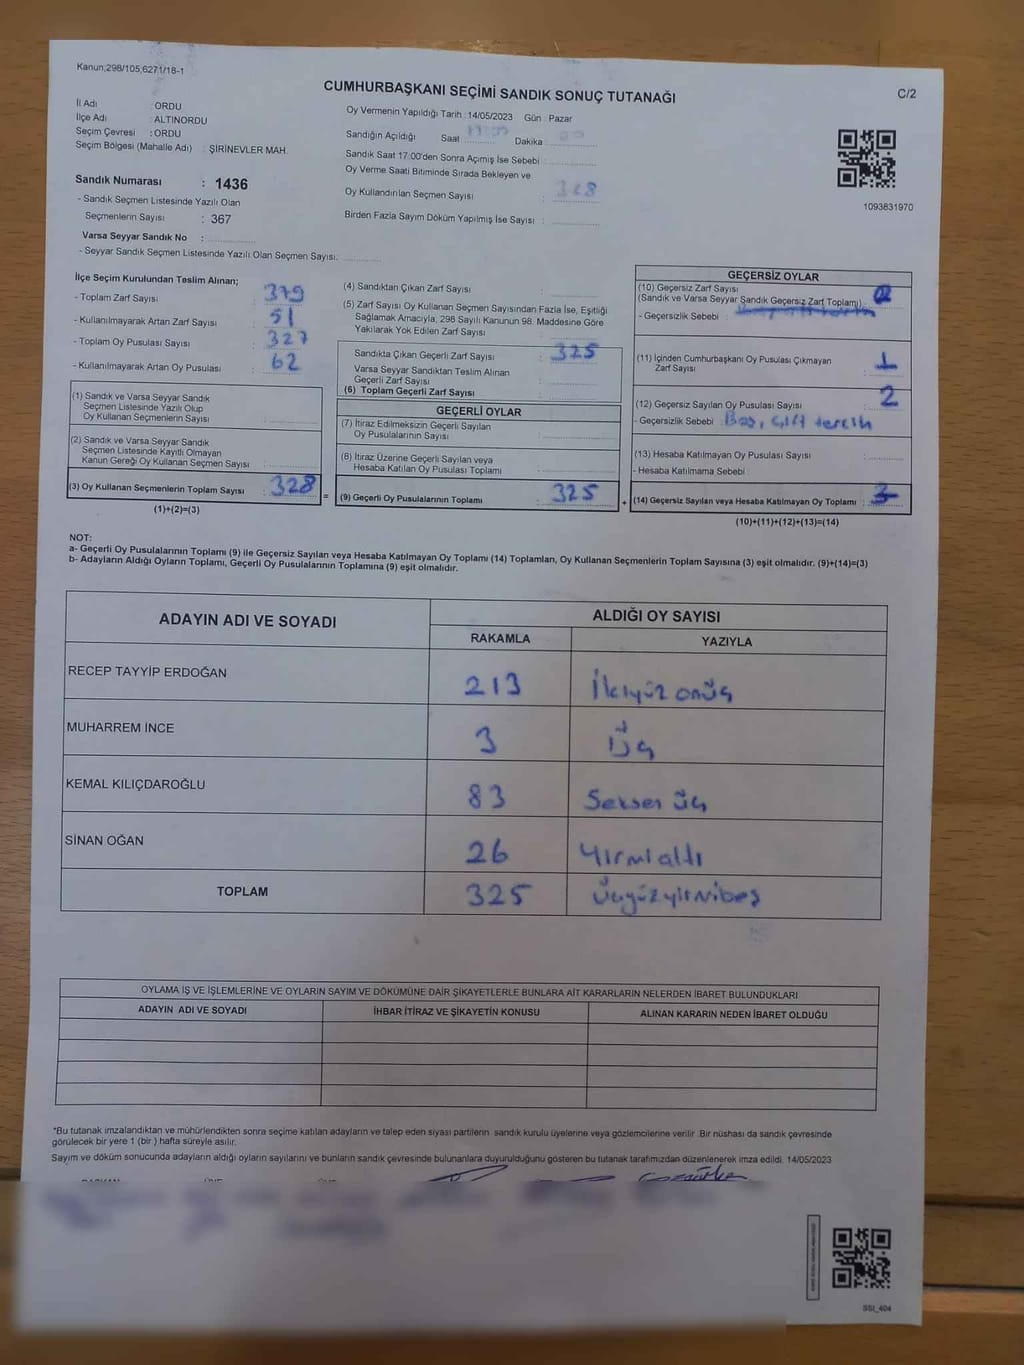 Kanun,298/105,6271/18-1
CUMHURBAŞKANI SEÇİMİ SANDIK SONUÇ TUTANAĞI
C/2
İl Adı : ORDU
İlçe Adı : ALTINORDU
Seçim Çevresi : ORDU
Seçim Bölgesi (Mahalle Adı) : ŞİRİNEVLER MAH.
Sandık Numarası : 1436
- Sandık Seçmen Listesinde Yazılı Olan
Seçmenlerin Sayısı : 367
Varsa Seyyar Sandık No :
- Seyyar Sandık Seçmen Listesinde Yazılı Olan Seçmen Sayısı:
Oy Vermenin Yapıldığı Tarih : 14/05/2023 Gün : Pazar
Sandığın Açıldığı Saat Dakika
Sandık Saat 17:00'den Sonra Açımış İse Sebebi :
Oy Verme Saati Bitiminde Sırada Bekleyen ve
Oy Kullandırılan Seçmen Sayısı : 328
Birden Fazla Sayım Döküm Yapılmış İse Sayısı :
1093831970
İlçe Seçim Kurulundan Teslim Alınan;
- Toplam Zarf Sayısı : 379
- Kullanılmayarak Artan Zarf Sayısı : 51
- Toplam Oy Pusulası Sayısı : 327
- Kullanılmayarak Artan Oy Pusulası : 62
(1) Sandık ve Varsa Seyyar Sandık
Seçmen Listesinde Yazılı Olup
Oy Kullanan Seçmenlerin Sayısı :
(2) Sandık ve Varsa Seyyar Sandık
Seçmen Listesinde Kayıtlı Olmayan
Kanun Gereği Oy Kullanan Seçmen Sayısı :
(3) Oy Kullanan Seçmenlerin Toplam Sayısı : 328
(1)+(2)=(3)
=
(4) Sandıktan Çıkan Zarf Sayısı :
(5) Zarf Sayısı Oy Kullanan Seçmen Sayısından Fazla İse, Eşitliği
Sağlamak Amacıyla, 298 Sayılı Kanunun 98. Maddesine Göre
Yakılarak Yok Edilen Zarf Sayısı :
Sandıkta Çıkan Geçerli Zarf Sayısı : 325
Varsa Seyyar Sandıktan Teslim Alınan
Geçerli Zarf Sayısı :
(6) Toplam Geçerli Zarf Sayısı :
GEÇERLİ OYLAR
(7) İtiraz Edilmeksizin Geçerli Sayılan
Oy Pusulalarının Sayısı :
(8) İtiraz Üzerine Geçerli Sayılan veya
Hesaba Katılan Oy Pusulası Toplamı :
(9) Geçerli Oy Pusulalarının Toplamı : 325
+
GEÇERSİZ OYLAR
(10) Geçersiz Zarf Sayısı
(Sandık ve Varsa Seyyar Sandık Geçersiz Zarf Toplamı) :
- Geçersizlik Sebebi :
(11) İçinden Cumhurbaşkanı Oy Pusulası Çıkmayan
Zarf Sayısı : 1
(12) Geçersiz Sayılan Oy Pusulası Sayısı : 2
- Geçersizlik Sebebi : Boş, çift tercih
(13) Hesaba Katılmayan Oy Pusulası Sayısı :
- Hesaba Katılmama Sebebi :
(14) Geçersiz Sayılan veya Hesaba Katılmayan Oy Toplamı : 3
(10)+(11)+(12)+(13)=(14)
NOT:
a- Geçerli Oy Pusulalarının Toplamı (9) ile Geçersiz Sayılan veya Hesaba Katılmayan Oy Toplamı (14) Toplamları, Oy Kullanan Seçmenlerin Toplam Sayısına (3) eşit olmalıdır. (9)+(14)=(3)
b- Adayların Aldığı Oyların Toplamı, Geçerli Oy Pusulalarının Toplamına (9) eşit olmalıdır.
ADAYIN ADI VE SOYADI
ALDIĞI OY SAYISI
RAKAMLA
YAZIYLA
RECEP TAYYİP ERDOĞAN 213 İkiyüz onüç
MUHARREM İNCE 3 Üç
KEMAL KILIÇDAROĞLU 83 Seksen üç
SİNAN OĞAN 26 Yirmialtı
TOPLAM 325 Üçyüzyirmibeş
OYLAMA İŞ VE İŞLEMLERİNE VE OYLARIN SAYIM VE DÖKÜMÜNE DAİR ŞİKAYETLERLE BUNLARA AİT KARARLARIN NELERDEN İBARET BULUNDUKLARI
ADAYIN ADI VE SOYADI
İHBAR İTİRAZ VE ŞİKAYETİN KONUSU
ALINAN KARARIN NEDEN İBARET OLDUĞU
*Bu tutanak imzalandıktan ve mühürlendikten sonra seçime katılan adayların ve talep eden siyasi partilerin sandık kurulu üyelerine veya gözlemcilerine verilir. Bir nüshası da sandık çevresinde
görülecek bir yere 1 (bir ) hafta süreyle asılır.
Sayım ve döküm sonucunda adayların aldığı oyların sayılarını ve bunların sandık çevresinde bulunanlara duyurulduğunu gösteren bu tutanak tarafımızdan düzenlenerek imza edildi. 14/05/2023
SSI_404